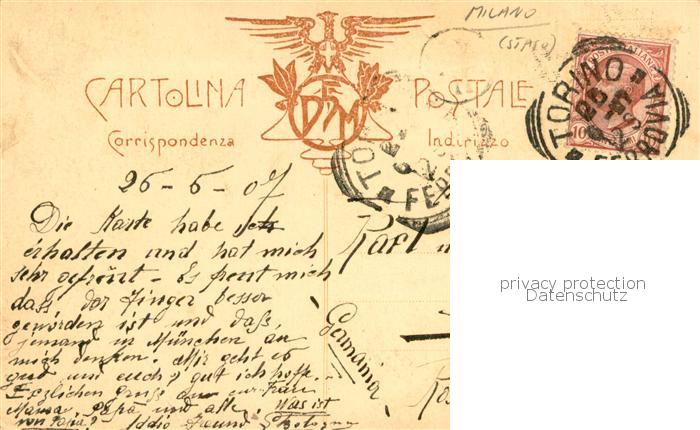 MILANO
(STASU)
CARTOLINA POSTALE
Corrispondenza Indirizzo
TORINO
FERROVIA
10
26-6-07
Die Karte habe ich
erhalten und hat mich
sehr gefreut - Es freut mich
dass der Finger besser
geworden ist und daß
jemand in München an
mich denken. Mir geht es
gut und euch? gut ich hoffe.
Herzlichen Gruss an
Mama, Papa und alle. Was ist
von Papa? Addio Freund Bologna
Karl
Germania
privacy protection
Datenschutz